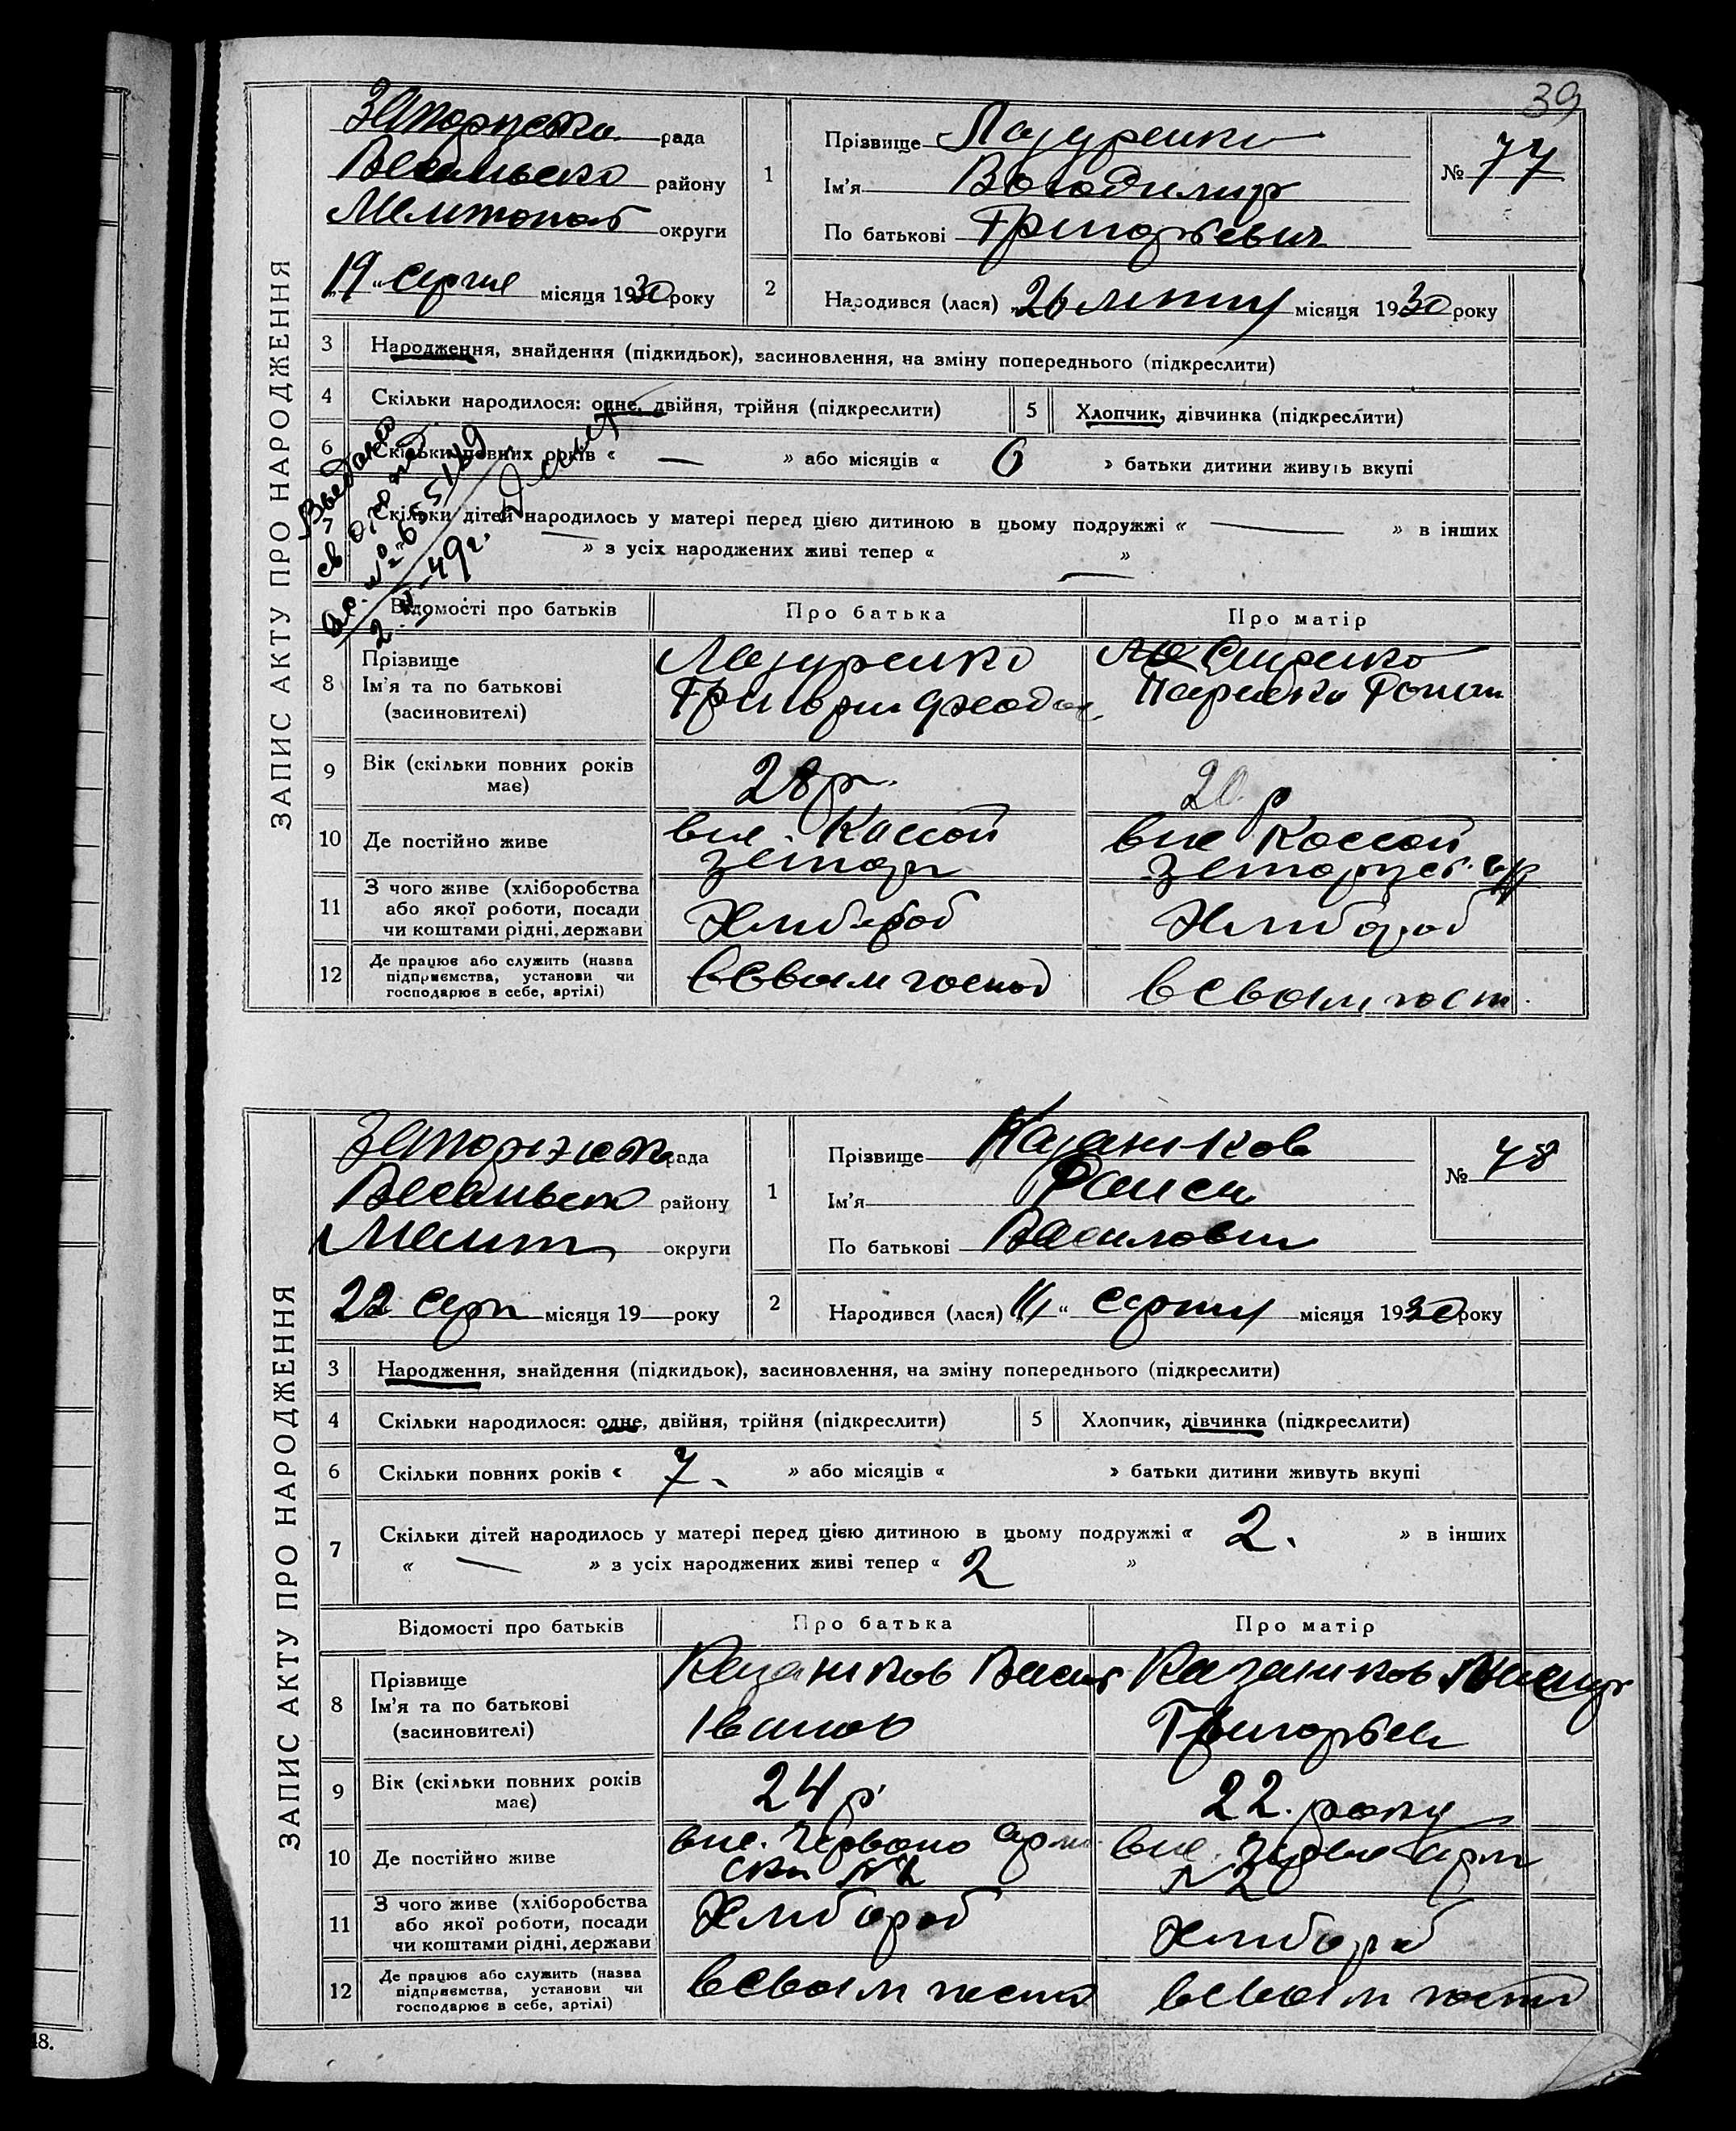 39
ЗАПИС АКТУ ПРО НАРОДЖЕННЯ
рада
району
Мелитопол округи
19 серпня місяця 1930 року
1
Прізвище Лазуренко
Ім'я Володимир
По батькові Григорьевич
№ 77
2
Народився (лася) 26 лютня місяця 1930 року
3 Народження, знайдення (підкидьок), засиновлення, на зміну попереднього (підкреслити)
4 Скільки народилося: одне, двійня, трійня (підкреслити)
5 Хлопчик, дівчинка (підкреслити)
6 Скільки повних років « — » або місяців « 6 » батьки дитини живуть вкупі
7 Скільки дітей народилось у матері перед цією дитиною в цьому подружжі « — » в інших
— » з усіх народжених живі тепер « — »
Відомості про батьків
Про батька
Про матір
8 Прізвище
Ім'я та по батькові
(засновителі)
Лазуренко
Григорий Феодо
9 Вік (скільки повних років
має)
28 р.
20 р
10 Де постійно живе
вис. Коссой
вис Коссой
11 З чого живе (хліборобства
або якої роботи, посади
чи коштами рідні, держави
Хлибороб
Хлибороб
12 Де працює або служить (назва
підприємства, установи чи
господарює в себе, артілі)
в свом господ
в свом госп.
ЗАПИС АКТУ ПРО НАРОДЖЕННЯ
рада
району
Мелит округи
22 серп місяця 19 — року
1
Прізвище Казаников
Ім'я Раиса
По батькові Василовн
№ 78
2
Народився (лася) " серпня місяця 1930 року
3 Народження, знайдення (підкидьок), засиновлення, на зміну попереднього (підкреслити)
4 Скільки народилося: одне, двійня, трійня (підкреслити)
5 Хлопчик, дівчинка (підкреслити)
6 Скільки повних років « 7. » або місяців « » батьки дитини живуть вкупі
7 Скільки дітей народилось у матері перед цією дитиною в цьому подружжі « 2. » в інших
« — » з усіх народжених живі тепер « 2 »
Відомості про батьків
Про батька
Про матір
8 Прізвище
Ім'я та по батькові
(засиновителі)
Казаников Васил
Іванов
Казаников
Григорьев
9 Вік (скільки повних років
має)
24 р.
22. року
10 Де постійно живе
вис. Червоно арм
ски № 2
вис. Черво Арм
№ 2
11 З чого живе (хліборобства
або якої роботи, посади
чи коштами рідні, держави
Хлибороб
Хлибороб
12 Де працює або служить (назва
підприємства, установи чи
господарює в себе, артілі)
в свом госпо
в свом госпо
48.